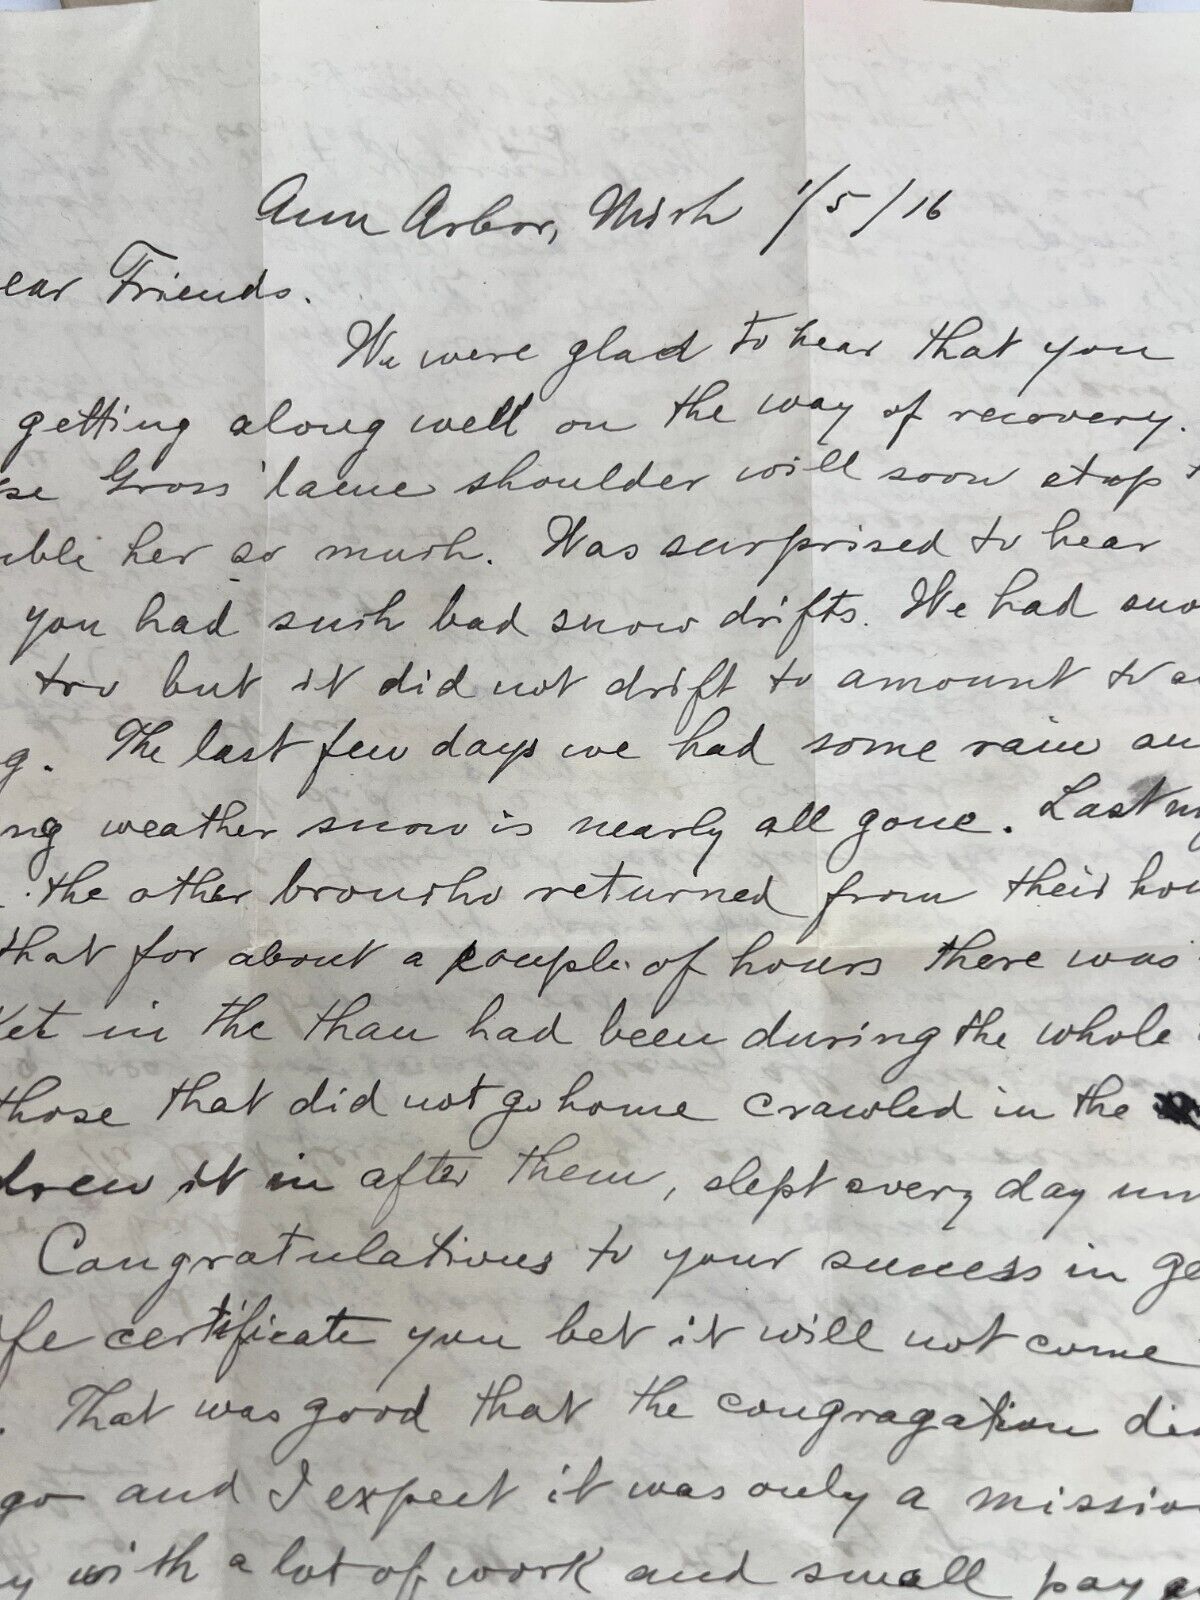 Ann Arbor, Mich 1/5/16
ear Friends.
We were glad to hear that you
getting along well on the way of recovery.
se Gross' lame shoulder will soon stop t
uble her so much. Was surprised to hear
you had such bad snow drifts. We had sno
too but it did not drift to amount to a
g. The last few days we had some rain an
ng weather snow is nearly all gone. Last
the other broncho returned from their hou
that for about a couple of hours there was
ket in the than had been during the whole
those that did not go home crawled in the
drew it in after them, slept every day un
Congratulations to your success in ge
ife certificate you bet it will not come
. That was good that the congragation di
go and I expect it was only a missio
y with a lot of work and small pay